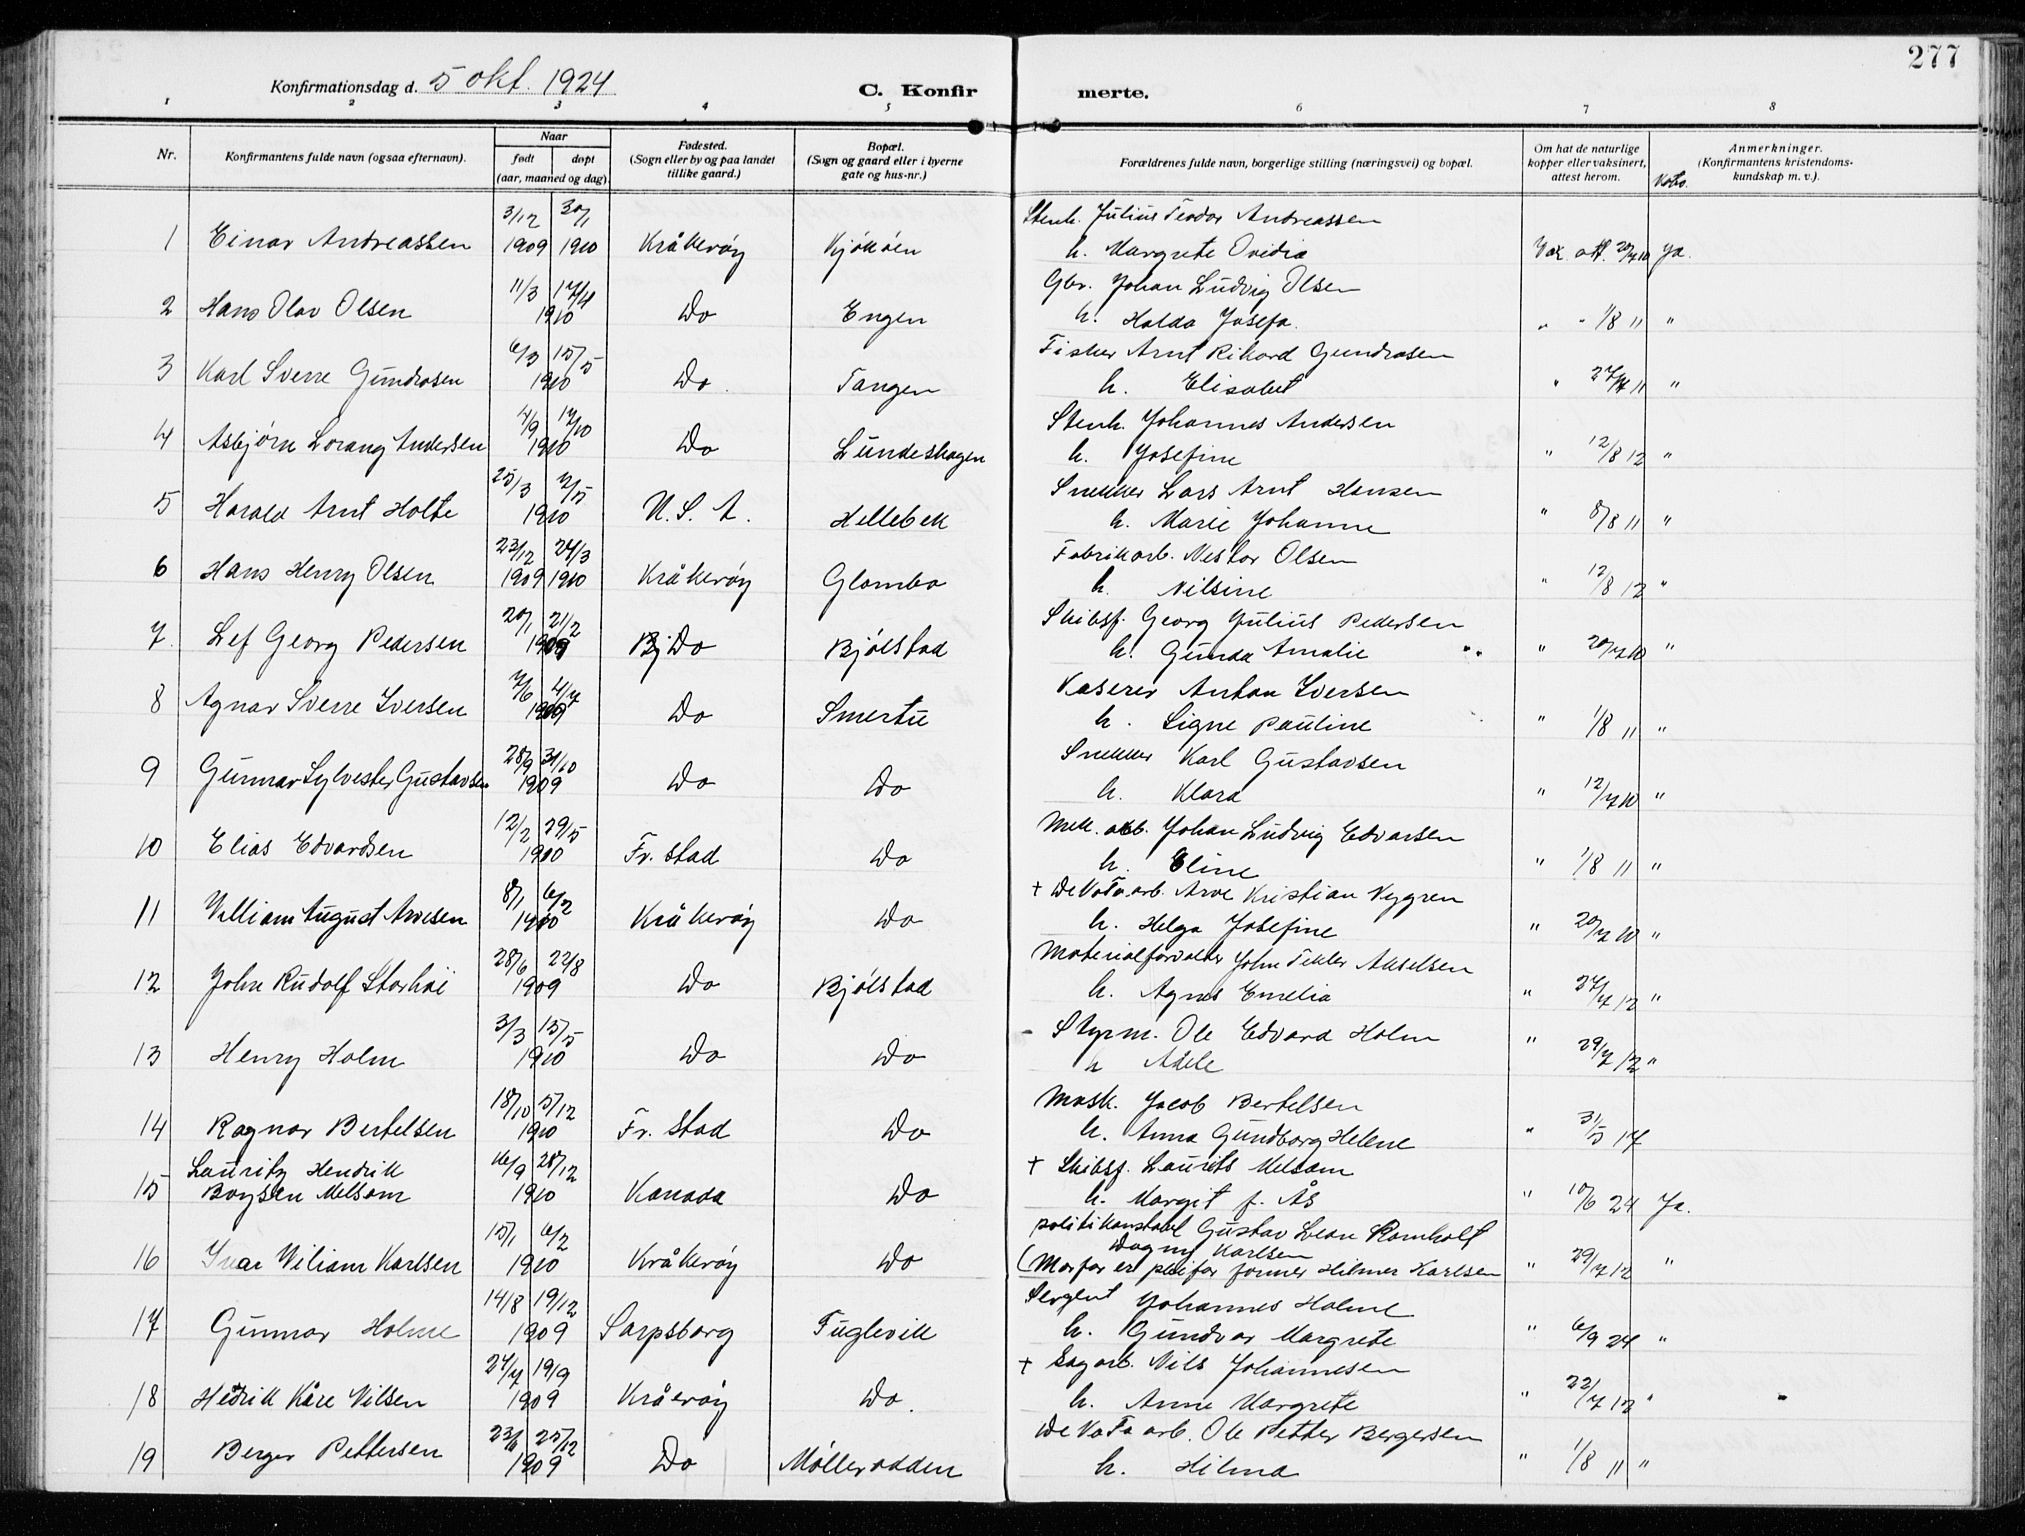 277
Konfirmationsdag d. 5 okt. 1924
C. Konfirmerte.
1 2 3 4 5 6 7 8
Nr.
Konfirmantens fulde navn (ogsaa efternavn).
Naar
født døpt
(aar, maaned og dag).
Fødested.
(Sogn eller by og paa landet
tillike gaard.)
Bopæl.
(Sogn og gaard eller i byerne
gate og hus-nr.)
Forældrenes fulde navn, borgerlige stilling (næringsvei) og bopæl.
Om hat de naturlige
kopper eller vaksinert,
attest herom.
Anmerkninger.
(Konfirmantens kristendoms-
kundskap m. v.).
3/12 30/1 Stenh. Julius Teodor Andreassen
1 Einar Andreassen 1909 1910 Kråkerøy Kjøkøen h. Margrete Ovidia Vax. att. 20/7 10 Ja.
11/3 17/4 Gbr. Johan Ludvig Olsen
2 Hans Olav Olsen 1910 Do Engen h. Halda Josefa " " 1/8 11 "
6/3 15/5 Fisker Arnt Rikard Gundrosen
3 Karl Sverre Gundrosen 1910 Do Tangen h. Elisabet " 11 "
4/9 Stenh. Johannes Andersen
4 Asbjørn Lorang Andersen 1910 Do Lundeshagen h. Josefine " 12/8 12 "
25/3 Snekker Lars Arnt Hansen
5 Harald Arnt Holte 1910 U. S. A. Hellebek h. Marie Johanne " 8/8 11 "
23/12 24/3 Fabrikarb. Nestor Olsen
6 Hans Henry Olsen 1909 1910 Kråkerøy Glombo h. Nilsine " 12/8 12 "
20/1 21/2 Skibsf. Georg Julius Pedersen
7. Lef Georg Pedersen 1909 Do Bjølstad h. Gunda Amalie " 20/7 10 "
7/6 4/7 Kaserer Anton Iversen
8 Agnar Sverre Iversen 1909 Do Smertu h. Signe Pauline " 1/8 11 "
28/9 31/10 Snekker Karl Gustavsen
9 Gunnar Sylvester Gustavsen 1909 Do Do h. Klara " 12/7 10 "
12/2 29/5 Mek. arb. Johan Ludvig Edvarsen
10 Elias Edvardsen 1910 Fr. stad Do h. Eline " 1/8 11 "
8/1 6/2 + De No Fa arb. Arve Kristian Nygren
11 Villiam August Arvesen 1910 Kråkerøy Do h. Helga Josefine " 20/7 10 "
28/6 22/8 Materialforvalter John Tekler Akselsen
12 John Rudolf Storhoi 1909 Do Bjølstad h. Agnes Emelia " 27/7 12 "
3/3 15/5 Styrm. Ole Edvard Holm
13 Henry Holm 1910 Do Do h Adele " 29/7 12 "
18/10 5/12 Mask. Jacob Bertelsen
14 Ragnar Bertelsen 1910 Fr. stad Do h. Anna Gundborg Helene " 31/5 17
Lauritz Hendrik 16/9 28/12 + Skibsf. Laurits Melsom
15 Boysen Melsom 1910 Kanada Do h. Margit f. Ås " 10/6 24 Ja.
15/1 6/2 politikonstabel Gustav Leon Ramholt
Dagny Karlsen
16 Ivar Viliam Karlsen 1910 Kråkerøy Do (Morfar er pleifar former Hilmer Karlsen " 29/7 12 "
14/8 19/12 Sergent Johannes Holme
17 Gunnar Holme 1909 Sarpsborg Fuglevik h. Gundvor Margrete " 6/9 24 "
24/7 19/9 + Sagarb. Nils Johannesen
18 Hedrik Kåre Nilsen 1909 Kråerøy Do. h. Anne Margrete " 22/7 12 "
25/12 De No Fa arb. Ole Petter Bergersen
19 Berger Pettersen 1909 Do Møllerodden h. Hilma " 1/8 11 "